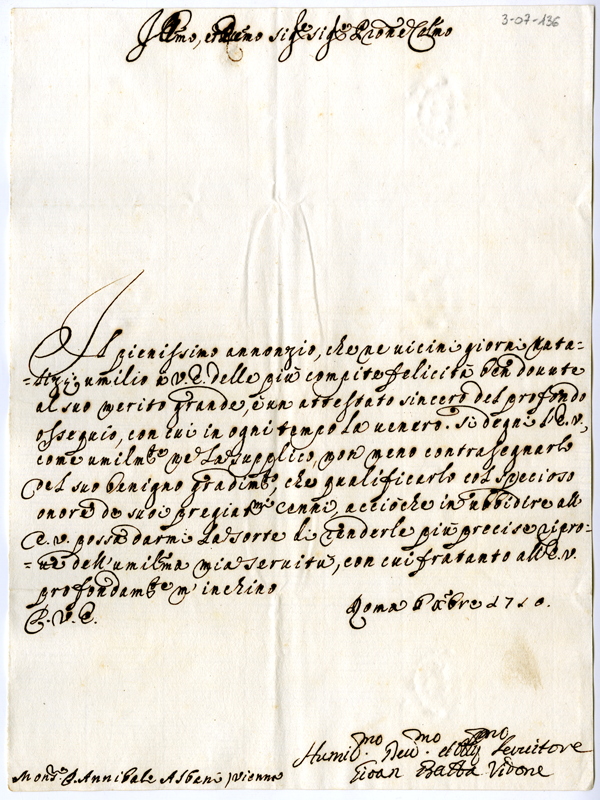 3-07-136
Ill.mo, e Rev.mo Sig.re Sig.re P̃rone Cal.mo
Il pienissimo annonzio, che ne uicini giorni Nata-
-lizij umilio à V.E. delle più compite felicità ben douute
al suo merito grande, è un attestato sincero del profondo
ossequio, con cui in ogni tempo la uenero. Si degni l'E.V.,
come umilm.te ne la supplico, non meno contrasegnarlo
del suo benigno gradim.to, che qualificarlo col specioso
onore de suoi pregiat.mi cenni, acciòche in ubbidire all
E.V. possa darmi la sorte di renderle più precise ripro-
-ue dell'umil.ma mia seruitù, con cui fratanto all'E.V.
profondam.te m'inchino
Roma 6 Xbre 1710.
E.V.E.
Humil.mo Deu.mo et Obl.mo Seruitore
Gioan Batta Vidone
Mons.r D. Annibale Albani, Vienna